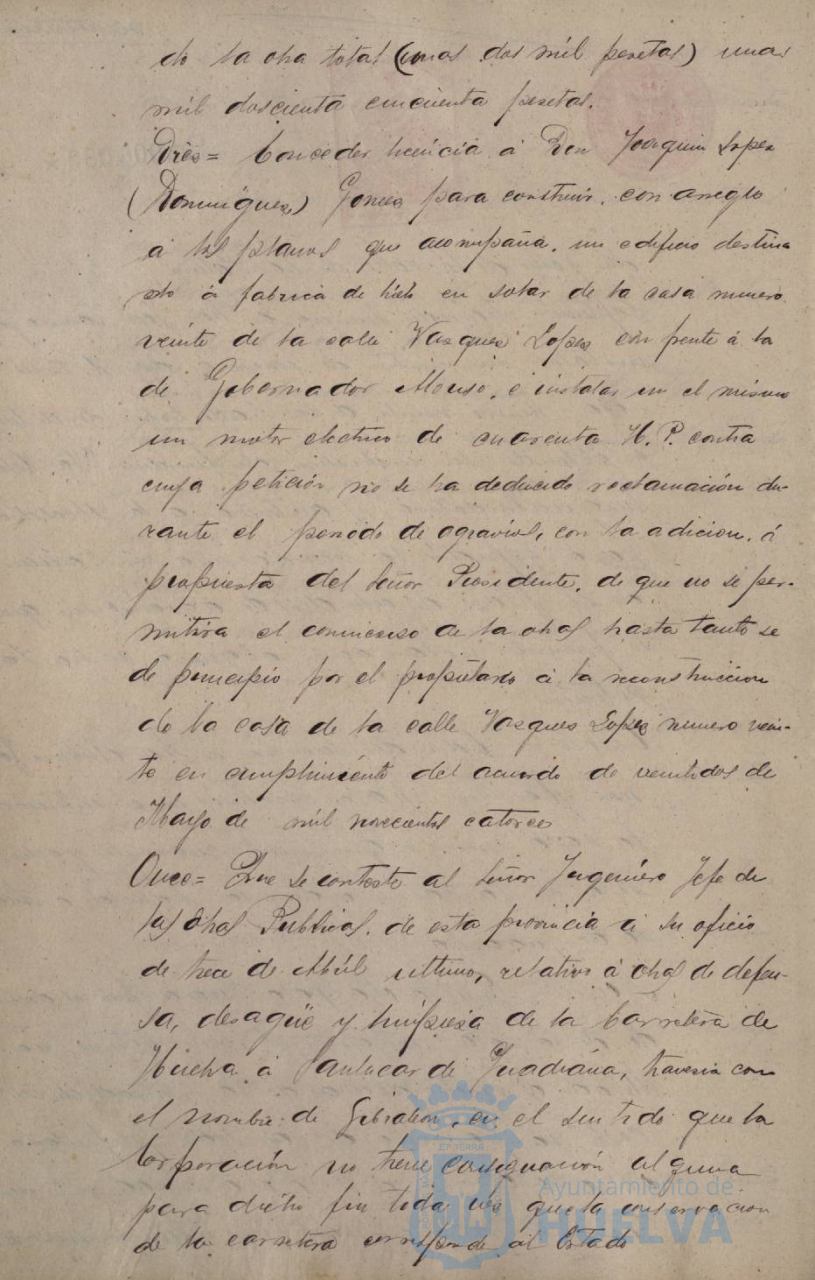 do la obra total (unas dos mil pesetas) unas
mil doscienta cincuenta pesetas.
Diez= Conceder licencia á Don Joaquin Lopez
(Dominguez) Gomez para construir, con arreglo
á los planos que acompaña, un edificio destina
do á fabrica de hielo en solar de la casa numero
veinte de la calle Vazquez Lopez con frente á la
de Gobernador Alonso, e instalar en el mismo
un motor electrico de cuarenta H.P. contra
cuya petición no se ha deducido reclamación du-
rante el periodo de agravios, con la adicion, á
propuesta del Señor Presidente, de que no se per-
mitira el comienzo de la obra hasta tanto se
de principio por el propietario á la reconstruccion
de la casa de la calle Vazquez Lopez numero vein-
te en cumplimiento del acuerdo de veintidos de
Mayo de mil novecientos catorce
Once= Que se conteste al Señor Ingeniero Jefe de
las Obras Publicas de esta provincia á su oficio
de trece de Abril ultimo, relativo á obras de defen-
sa, desagüe y limpieza de la Carretera de
Huelva á Sanlucar de Guadiana, travesia con
el nombre de Gibraleon, en el sentido que la
Corporación no tiene consignación alguna
para dicho fin toda vez que la conservacion
de la carretera corresponde al Estado
Ayuntamiento de
HUELVA